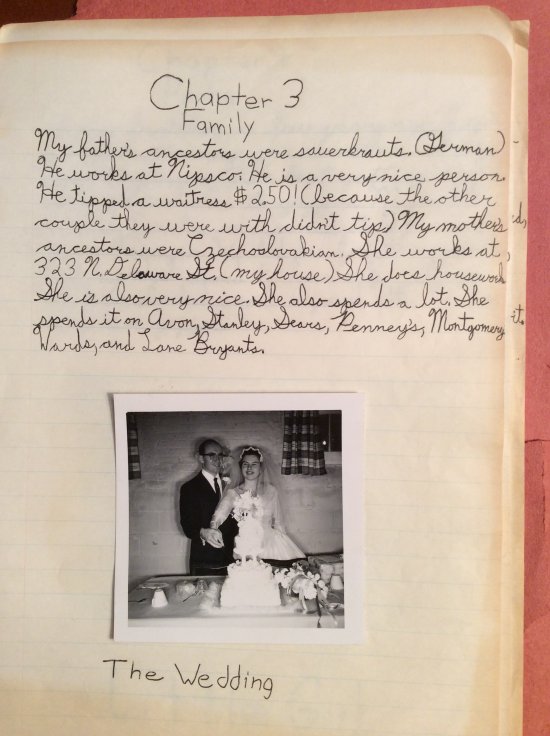 Chapter 3
Family
My father's ancestors were sauerkrauts. (German)
He works at Nipsco. He is a very nice person.
He tipped a waitress $2.50! (because the other
couple they were with didn't tip) My mother's
ancestors were Czechoslovakian. She works at
323 N. Delaware St. (my house) She does housework
She is also very nice. She also spends a lot. She
spends it on Avon, Stanley, Sears, Penney's, Montgomery
Wards, and Lane Bryants.
The Wedding